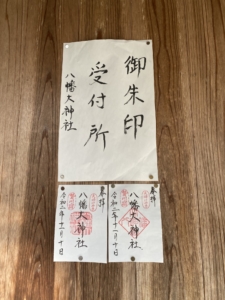 御朱印
受付所
八幡大神社
奉拝
八幡大神社
令和二年十一月十日
奉拝
八幡大神社
令和二年十一月十日